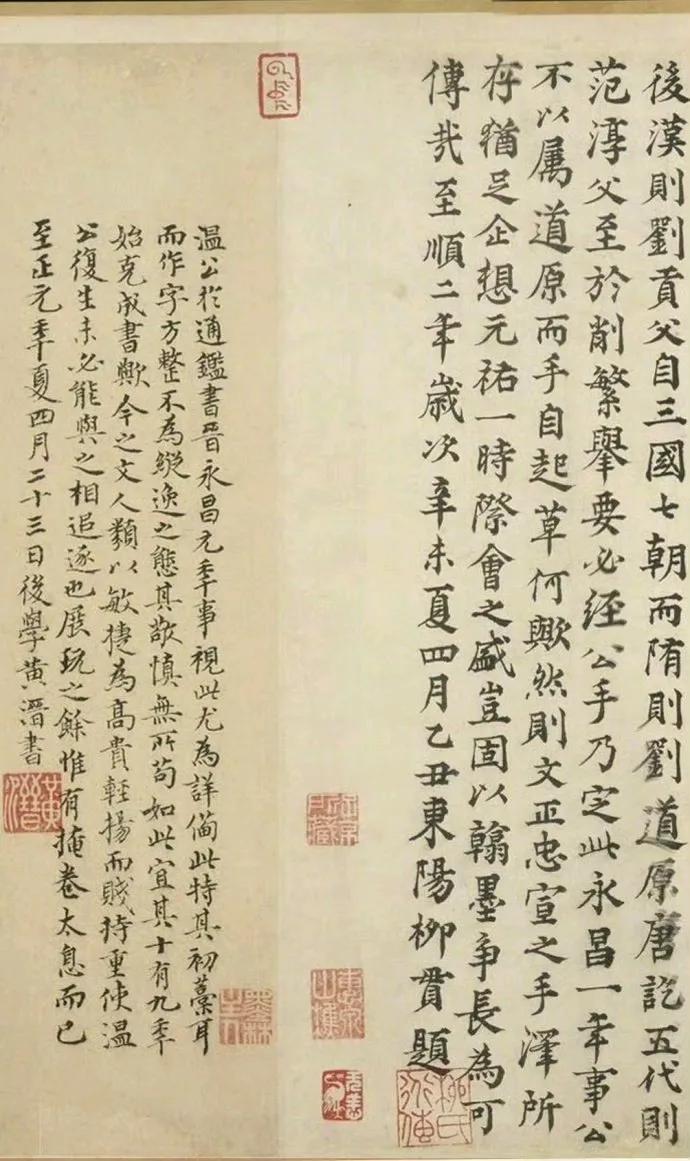 後漢則劉貢父自三國七朝而隋則劉道原唐訖五代則
范淳父至於削繁舉要必經公手乃定此永昌一年事公
不以屬道原而手自起草何歟然則文正忠宣之手澤所
存猶足企想元祐一時際會之盛豈固以翰墨爭長為可
傳哉至順二年歲次辛未夏四月乙丑東陽柳貫題
溫公於通鑑書晉永昌元年事視此尤為詳備此特其初藁耳
而作字方整不為縱逸之態其敬慎無所苟如此宜其十有九年
始克成書歟今之文人類以敏捷為高貴輕揚而賤持重使溫
公復生未必能與之相追逐也展玩之餘惟有掩卷太息而已
至正元年夏四月二十三日後學黃溍書
黃溍
柳氏